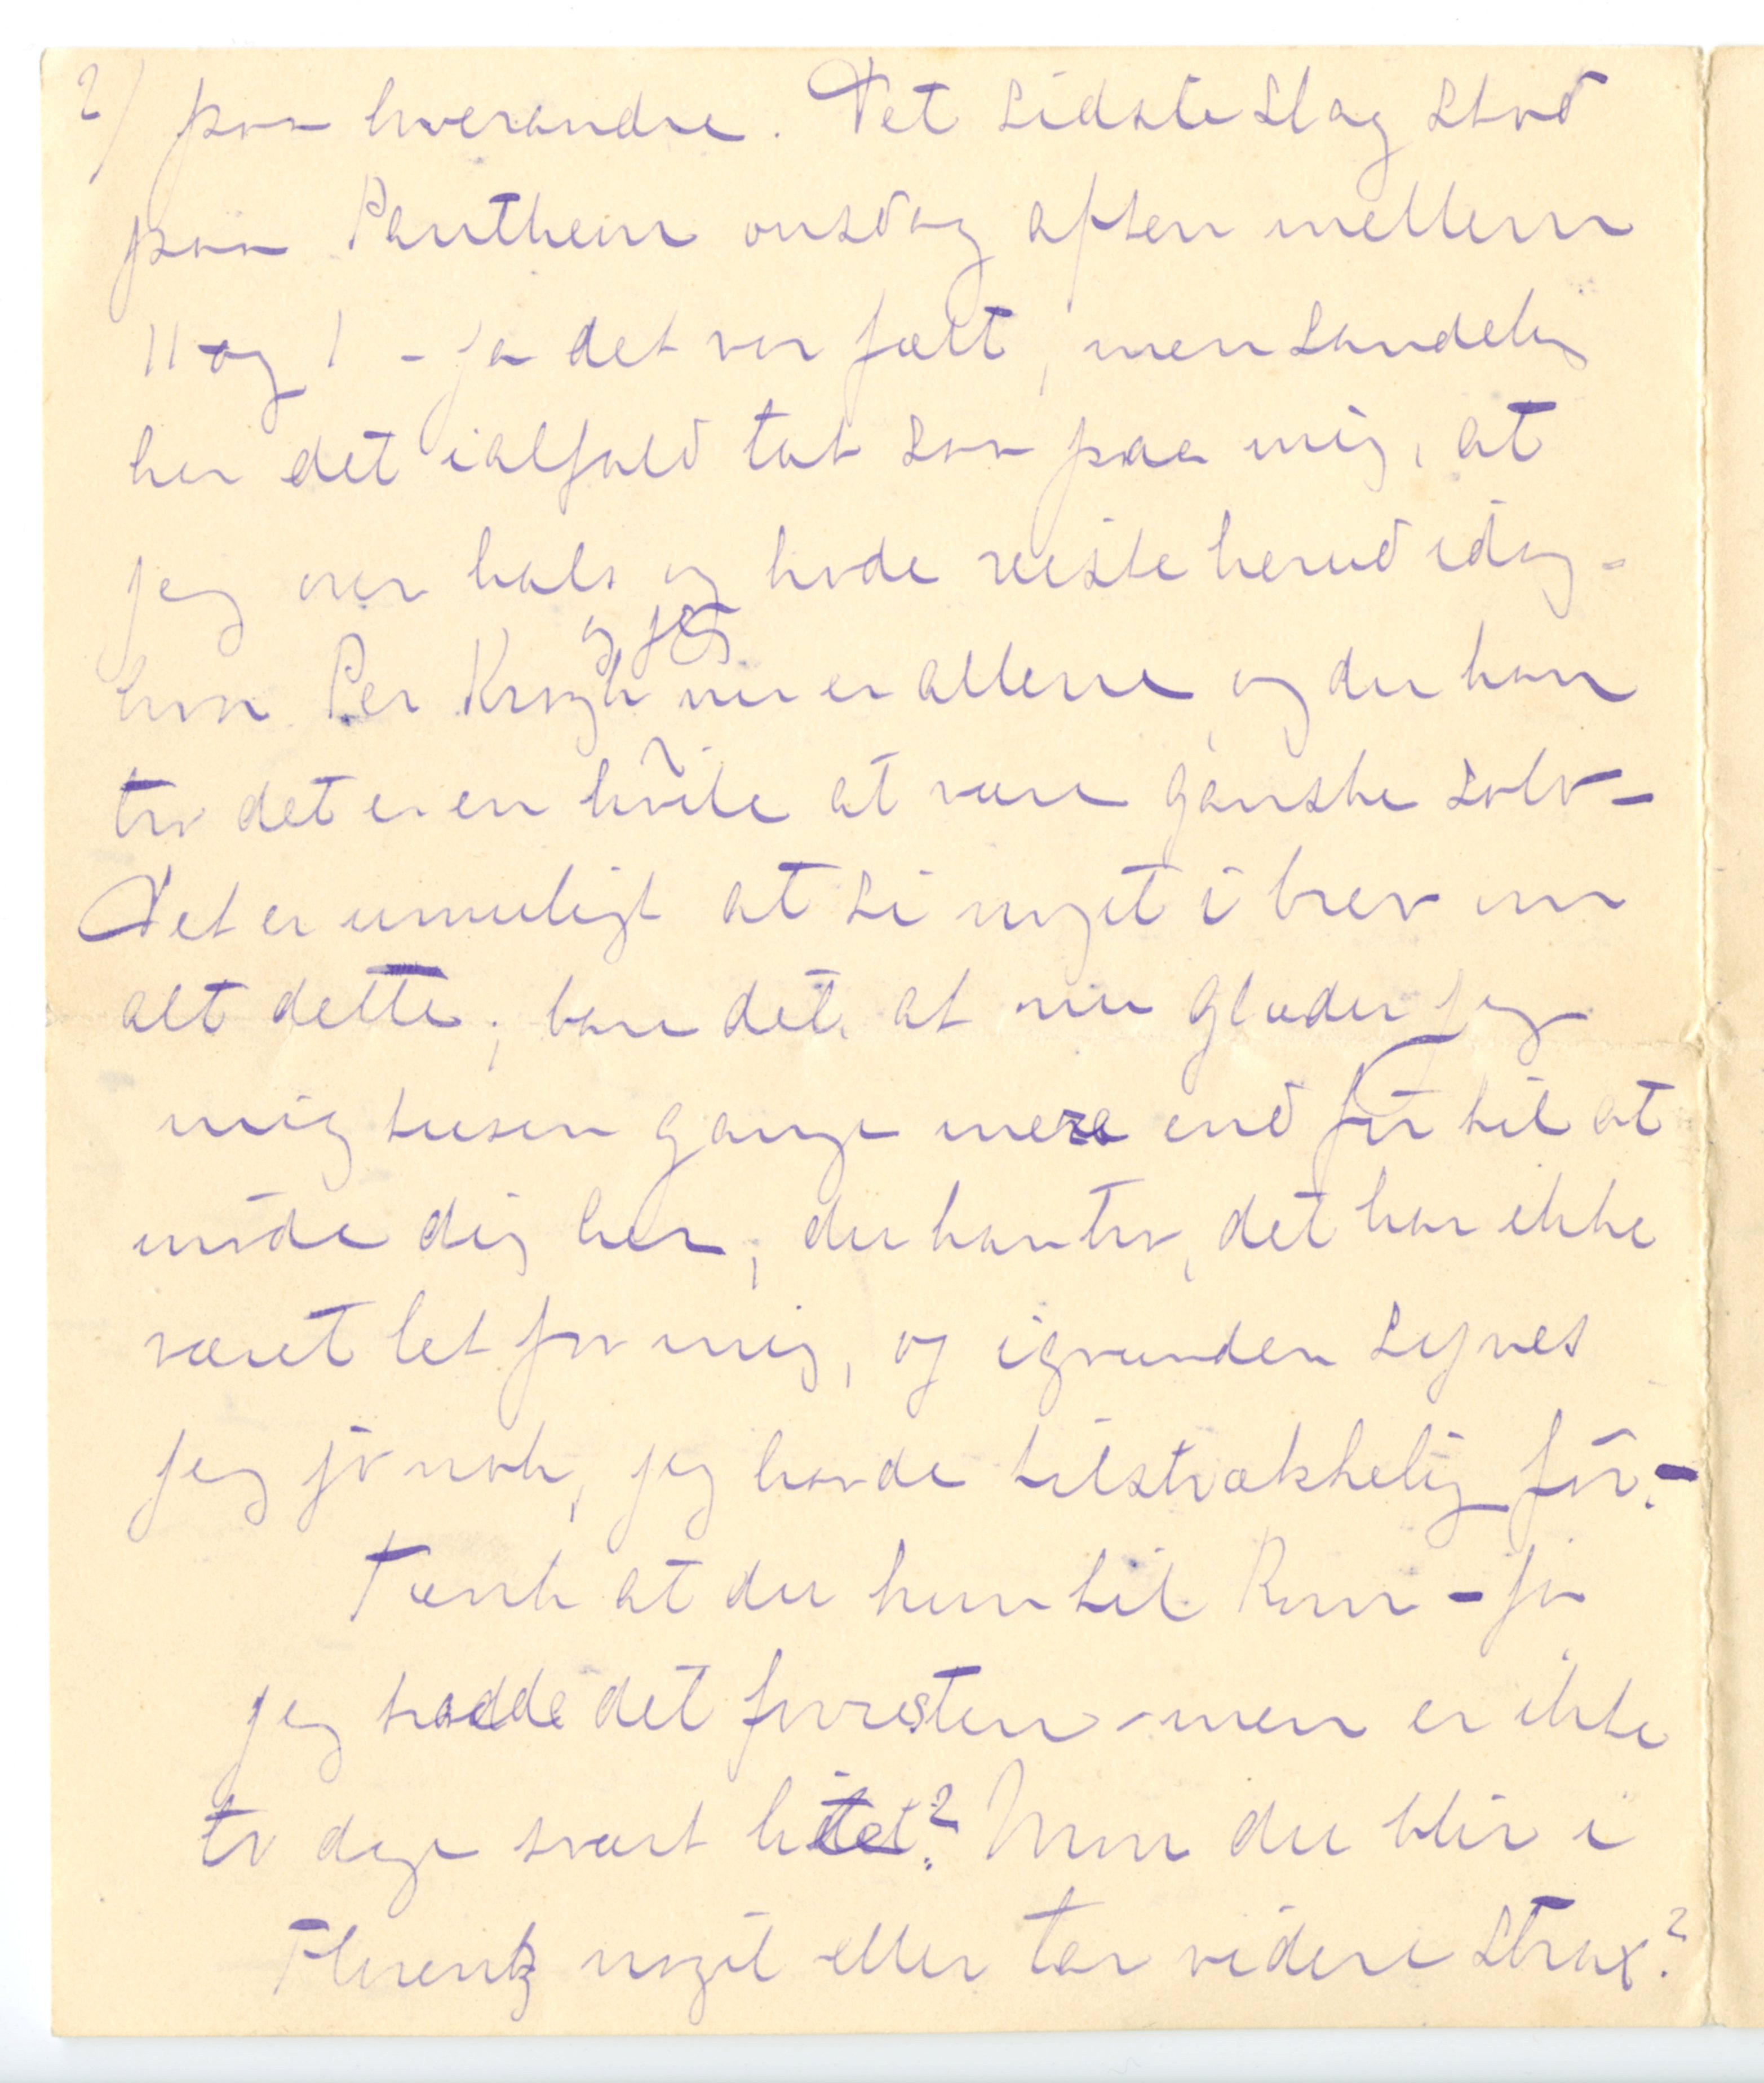 2) paa hverandre. Det sidste slag stod
paa Pantheon onsdag aften mellem
11 og 1 – ja det var fælt, men sandelig
har det ialfald tat saa paa mig, at
jeg over hals og hode reiste herud idag –
hvor Per Krogh og jeg nu er allene, og du kan
tro det er en hvile at være ganske solo –
Det er umuligt at si noget i brev om
alt dette; bare det, at nu glæder jeg
mig tusen gange mere end før til at
møde dig her; du kan tro, det har ikke
været let for mig, og igrunden synes
jeg jo nok, jeg havde tilstrækkelig før. –
Tænk at du kun til Rom – jo
jeg trodde det forresten – men er ikke
to dage svært litet? Mon du blir i
Florentz noget eller tar videre strax?